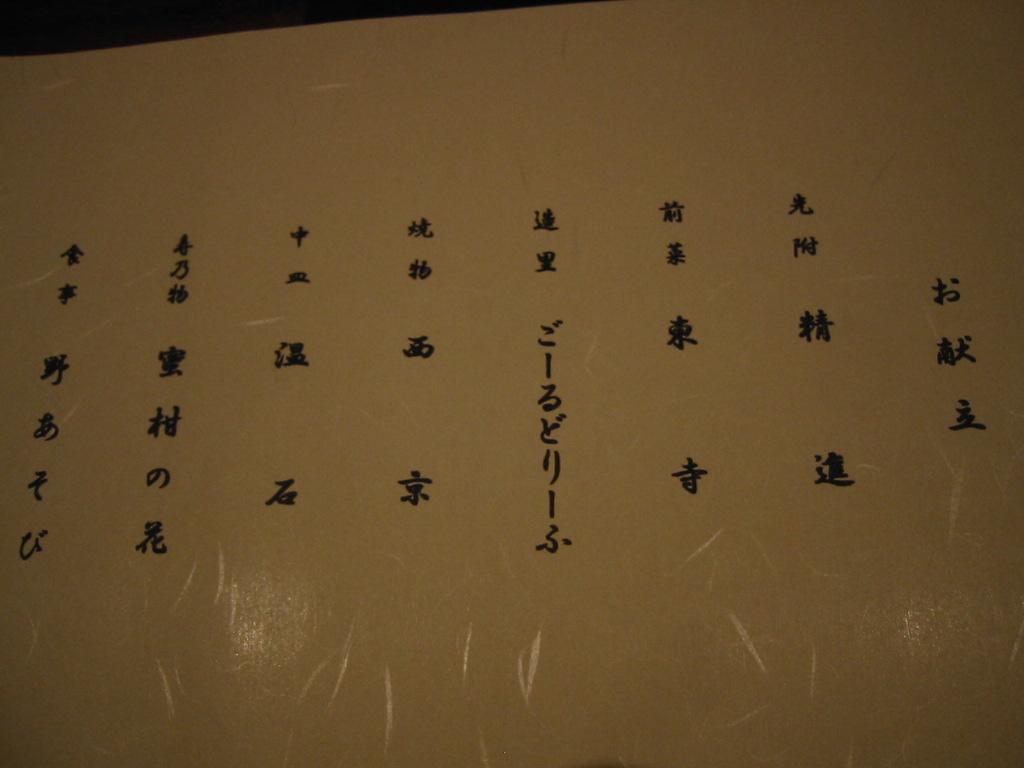 お献立
先附 精進
前菜 東寺
造里 ごーるどりーふ
焼物 西京
中皿 温石
寿乃物 蜜柑の花
食事 野あそび